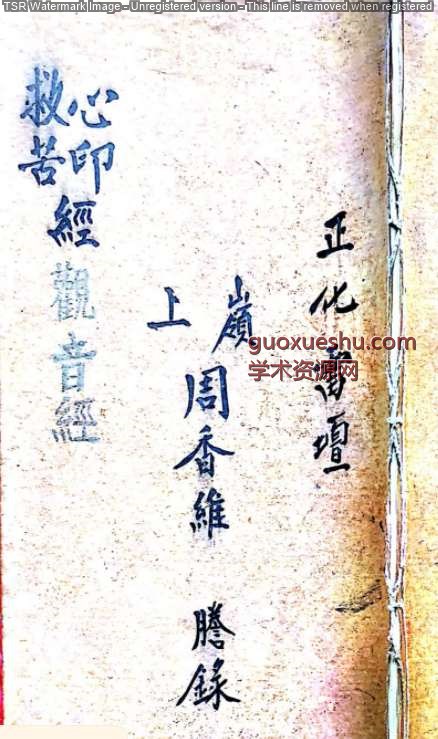 TSR Watermark Image - Unregistered version - This line is removed when registered
正化雷壇
嶺上
周香維 謄錄
心印
救苦
經觀音經
guoxueshu.com
学术资源网